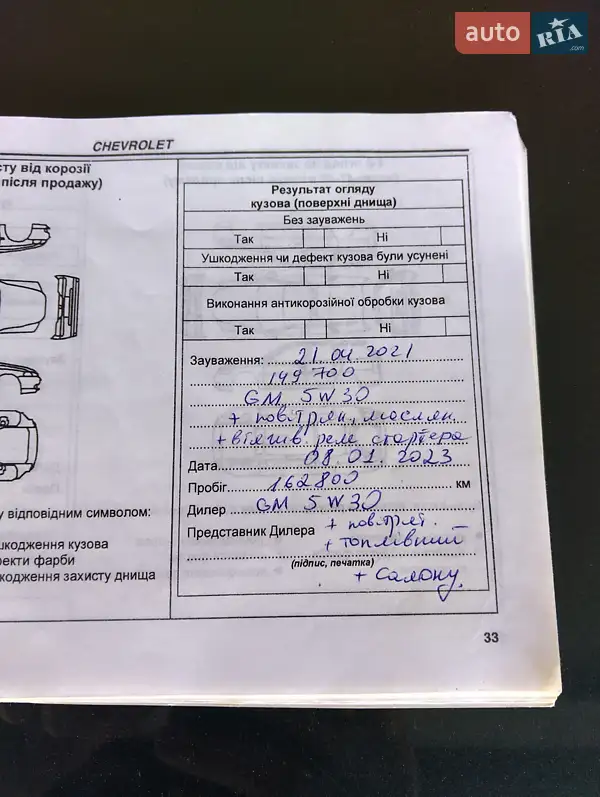 auto RIA .com
CHEVROLET
сту від корозії
після продажу)
Результат огляду
кузова (поверхні днища)
Без зауважень
Так Ні
Ушкодження чи дефект кузова були усунені
Так Ні
Виконання антикорозійної обробки кузова
Так Ні
Зауваження: 21.04 2021
149 700
GM 5W30
+ повітрян, маслян.
+ втяшв. реле стартера
Дата 08.01.2023
Пробіг 162800 км
Дилер GM 5W30
Представник Дилера + повітрят.
+ топлівний
(підпис, печатка)
+ салону.
у відповідним символом:
шкодження кузова
фекти фарби
кодження захисту днища
33